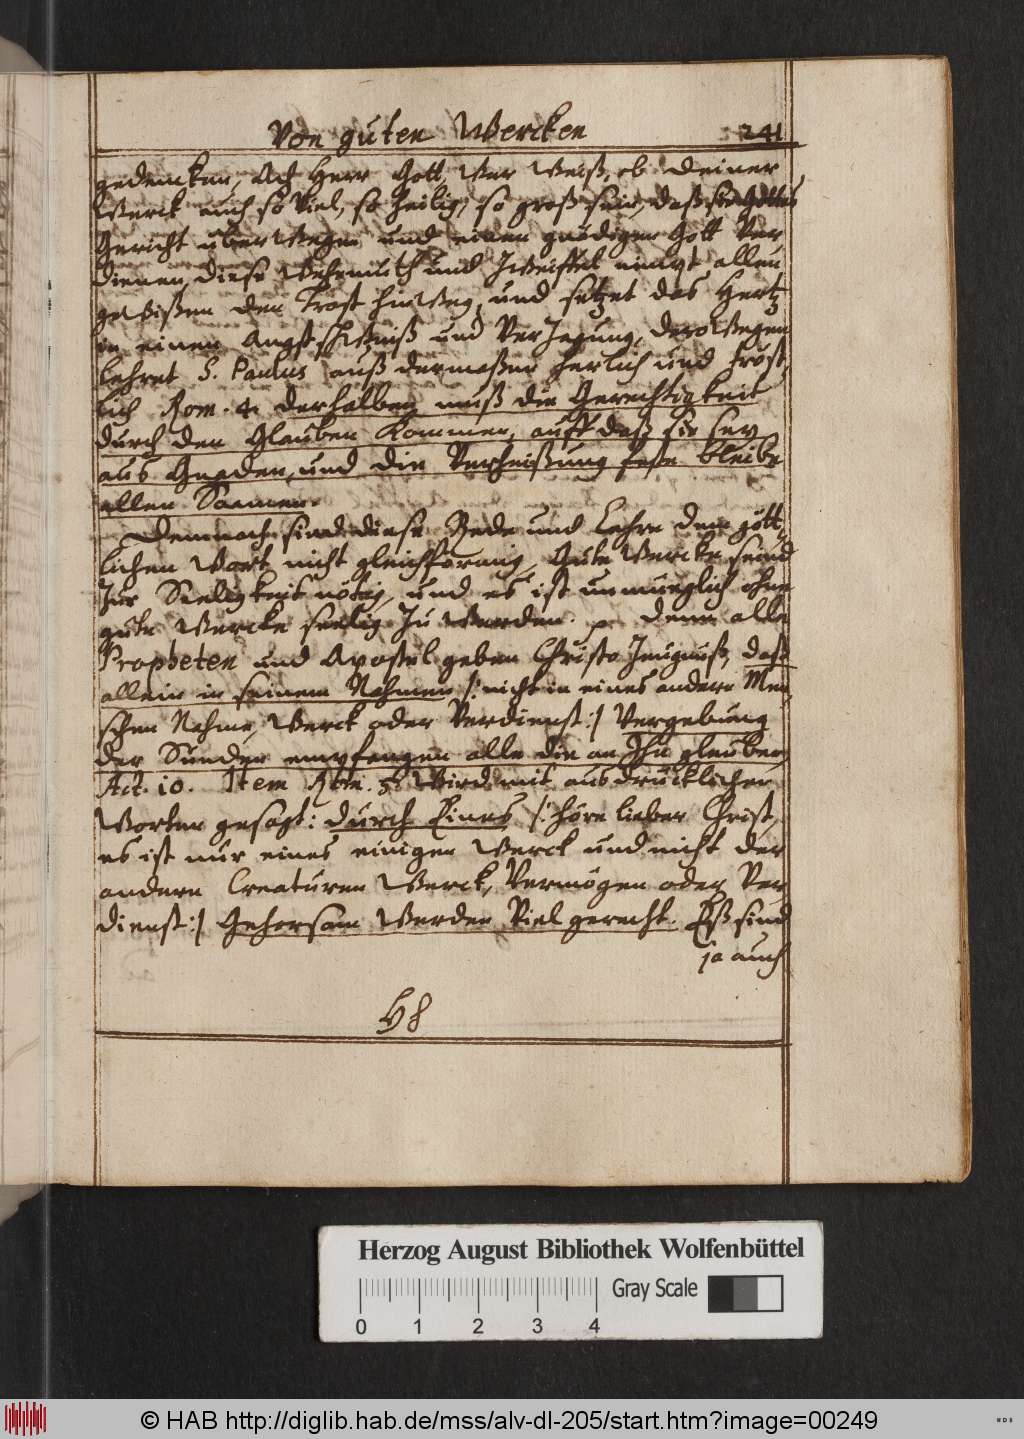 Von guten Wercken
241
gedencken, Ach Herr Gott, Wer Weiß, ob deiner
Werck auch so Viel, so heilig, so groß sein, daß sie Gottes
Gericht überWegen und einen gnädigen Gott Ver
dienen, diese Wehemuth und Zweiffel nimpt allen
gewißen den Trost hinWeg, und setzet das Hertz
in einen Angst und VerZagung, deroWegen
lehret S. Paulus auß dermaßen herlich und tröst,
lich Rom. 4. derhalben muß die Gerechtigkeit
durch den Glauben Kommen, auff daß sie sey
aus Gnaden, und die Verheißung feste bleibe
allen Saamen.
Demnach sind diese Rede und Lehre dem gött,
lichen Wort nicht gleichförmig, Gute Wercke seind
Zur Seeligkeit nötig, und es ist unmüeglich ohne
gute Wercke seelig Zu Werden. p. denn alle
Propheten und Apostel geben Christo Zeugnuß, daß
allein in seinem Nahmen /: nicht in eines andern Men,
schen Nahme, Werck oder Verdienst :/ Vergebung
der Sünden empfangen alle die an Ihn glauben
Act. 10. Item Rom. 5. Wird mit ausdrücklichen
Worten gesagt: durch Eines /: höre lieber Christ,
es ist nur eines einigen Werck und nicht der
andern Creaturen Werck, Vermögen oder Ver
dienst :/ Gehorsam Werden Viel gerecht. Eß sind
ja auch
H8
Herzog August Bibliothek Wolfenbüttel
Gray Scale
0 1 2 3 4
© HAB http://diglib.hab.de/mss/alv-dl-205/start.htm?image=00249